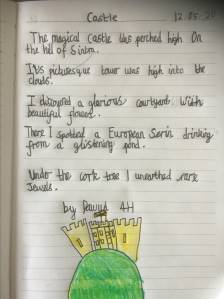 Castle 12.05.20
The magical Castle was perched high On
the hill of Sintra.
It's picturesque tower was high into the
clouds.
I discovered a glorious courtyard with
beautiful flowers.
There I spotted a European Serin drinking
from a glistening pond.
Under the cork tree I unearthed rare
Jewels.
by 4H